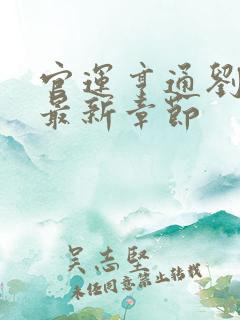 官運亨通劉
最新章節
吴志堅
未經同意禁止轉載